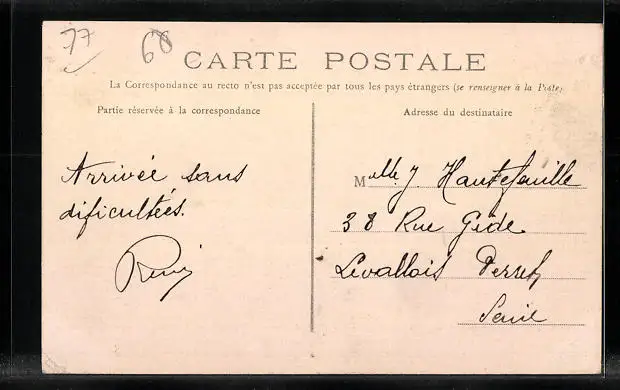 77
60
CARTE POSTALE
La Correspondance au recto n'est pas acceptée par tous les pays étrangers (se renseigner à la Poste)
Partie réservée à la correspondance
Adresse du destinataire
Arrivée sans
dificultées.
Mlle J. Hautefeuille
38 Rue Gide
Levallois Perret
Seine